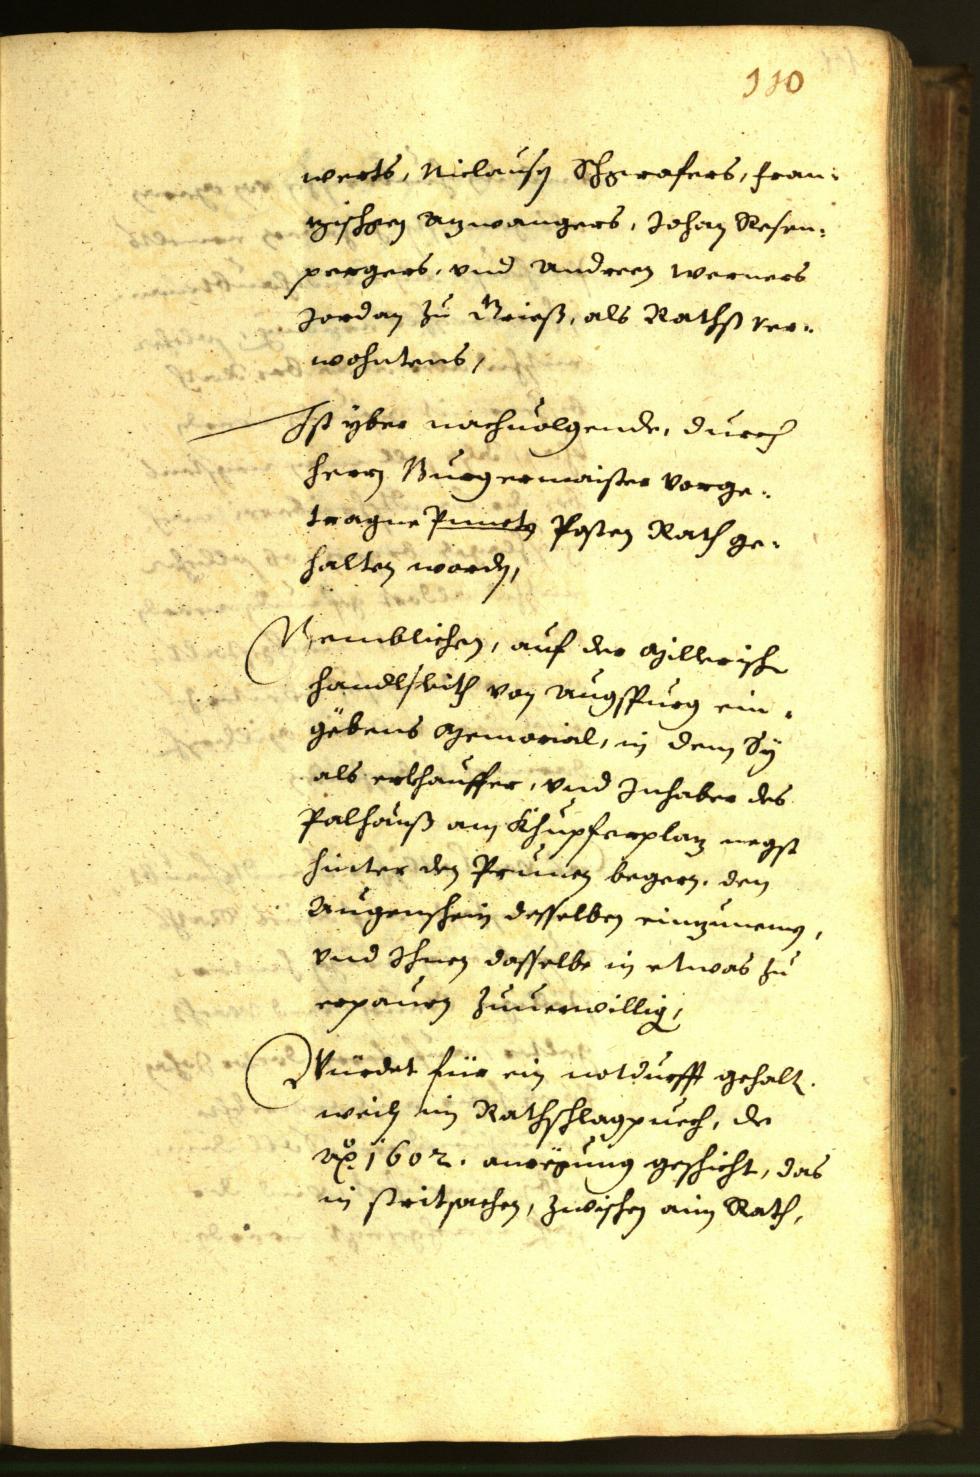 110
werts, Niclausen Schgrafers, Fran-
zischgen Anwangers, Johan Resen-
pergers, vnd Andreen Werners
Jordan zu Grieß, als Rathsver-
wohntens,
Ist yber nachuolgende, durch
herrn Burgermaister vorge-
tragne Puncten Posten Rath ge-
halten worden,
Nemblichen, auf der Hillerischen
handlsleith von Augspurg ein-
gebens Memorial, in dem Sy
als erkhauffer, vnd Inhaber des
Palhauß am Khupferplatz negst
hinter den Prunen begern, den
Augenschein desselben einzunemen,
vnd Ihnen dasselbe in etwas zu
erpauen zuuerwillig,
Würdet für ein notdurfft gehalt.
weiln im Rathschlagpuech, de
Ao. 1602. anregung geschicht, das
in stritsachen, zwischen ain Rath,